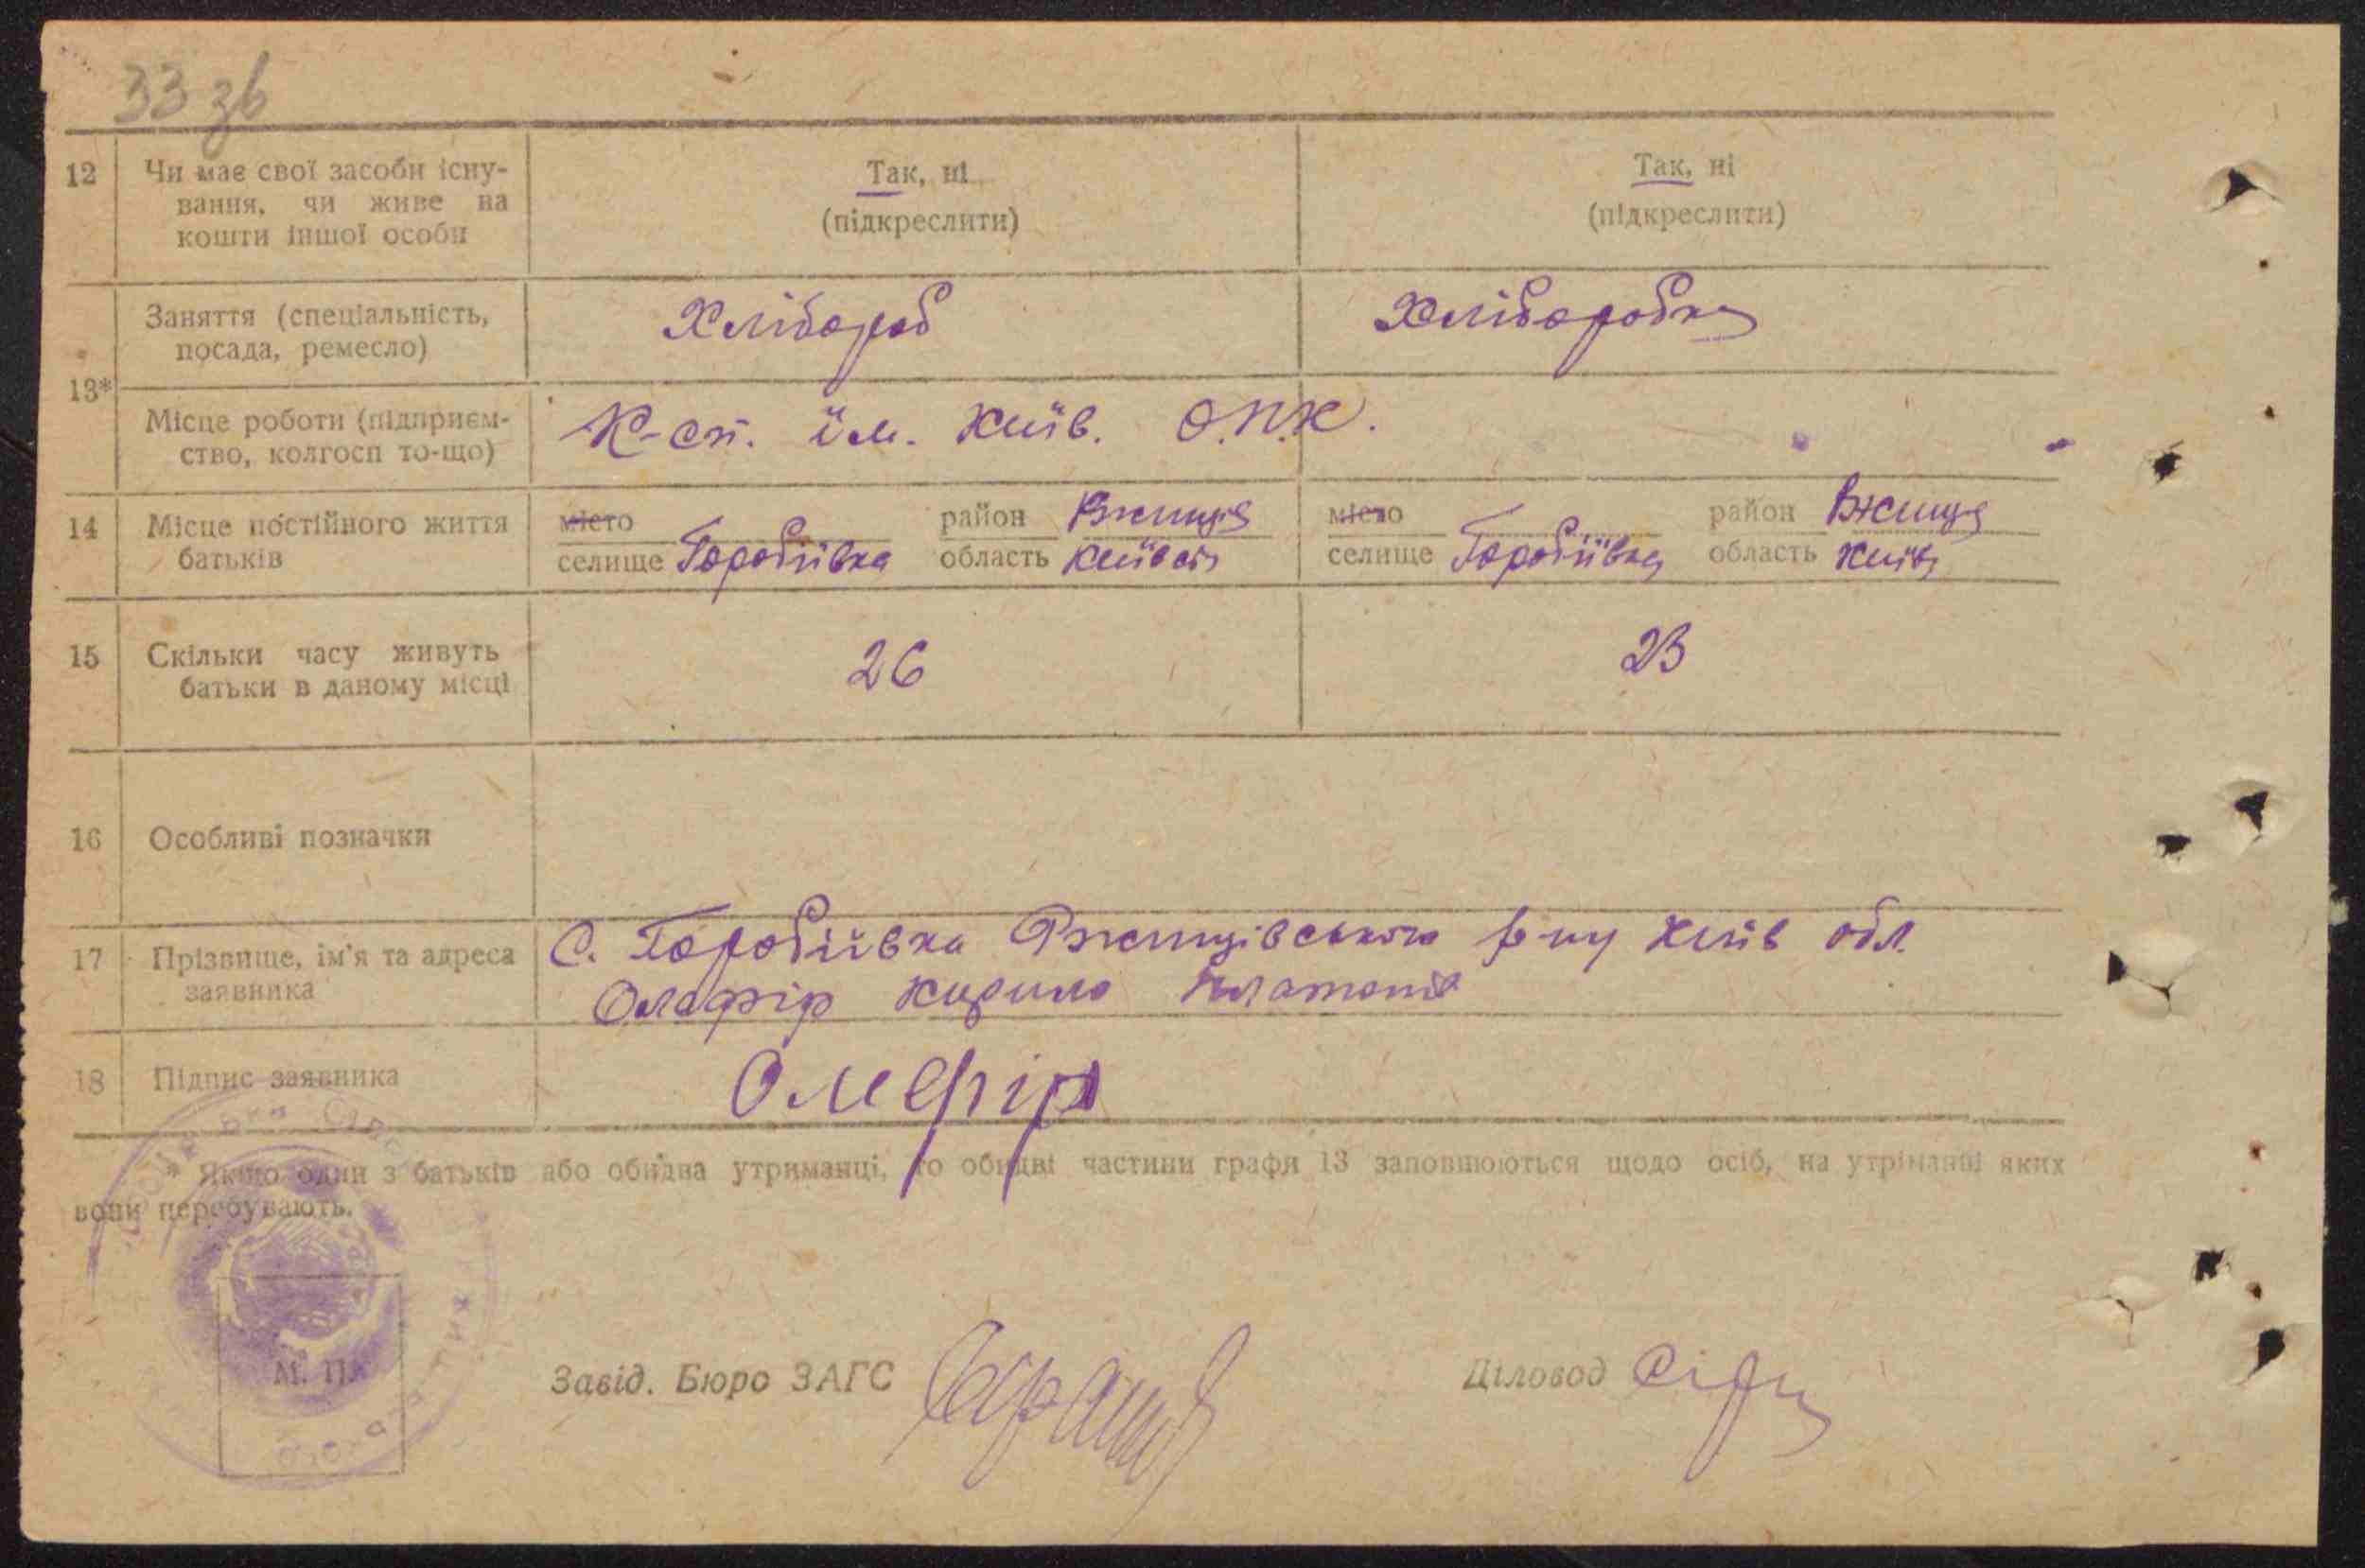 33 зв
12 Чи має свої засоби існу-
вання, чи живе на
кошти іншої особи
Так, ні
(підкреслити)
Так, ні
(підкреслити)
13*
Заняття (спеціальність,
посада, ремесло)
Хлібороб
Хлібаробка
Місце роботи (підприєм-
ство, колгосп то-що)
К-сп. їм. Київ. О.П.К.
14 Місце постійного життя
батьків
місто
селище Горобіївка
район Ржищів
область Київськ
місто
селище Горобіївка
район Ржищів
область Київ
15 Скільки часу живуть
батьки в даному місці
26
23
16 Особливі позначки
17 Прізвище, ім'я та адреса
заявника
С. Горобіївка Ржищівського р-ну Київ обл.
Олефір Кирило Платонів
18 Підпис заявника
Олефір
* Якщо один з батьків або обидва утриманці, то обидві частини графи 13 заповнюються щодо осіб, на утриманні яких
вони перебувають.
М. П.
Завід. Бюро ЗАГС
Діловод